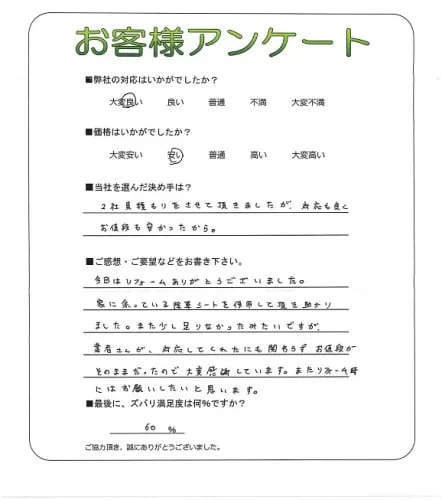 お客様アンケート
■弊社の対応はいかがでしたか？
大変良い 良い 普通 不満 大変不満
■価格はいかがでしたか？
大変安い 安い 普通 高い 大変高い
■当社を選んだ決め手は？
2社見積もりをさせて頂きましたが、対応も良く
お値段も安かったから。
■ご感想・ご要望などをお書き下さい。
今日はリフォームありがとうございました。
家に余っている除草シートを使用して頂き助かり
ました。また少し足りなかったみたいですが、
業者さんが、対応してくれたにも関わらず お値段が
そのままだったので大変感謝しています。またリフォーム時
にはお願いしたいと思います。
■最後に、ズバリ満足度は何%ですか？
60 %
ご協力頂き、誠にありがとうございました。